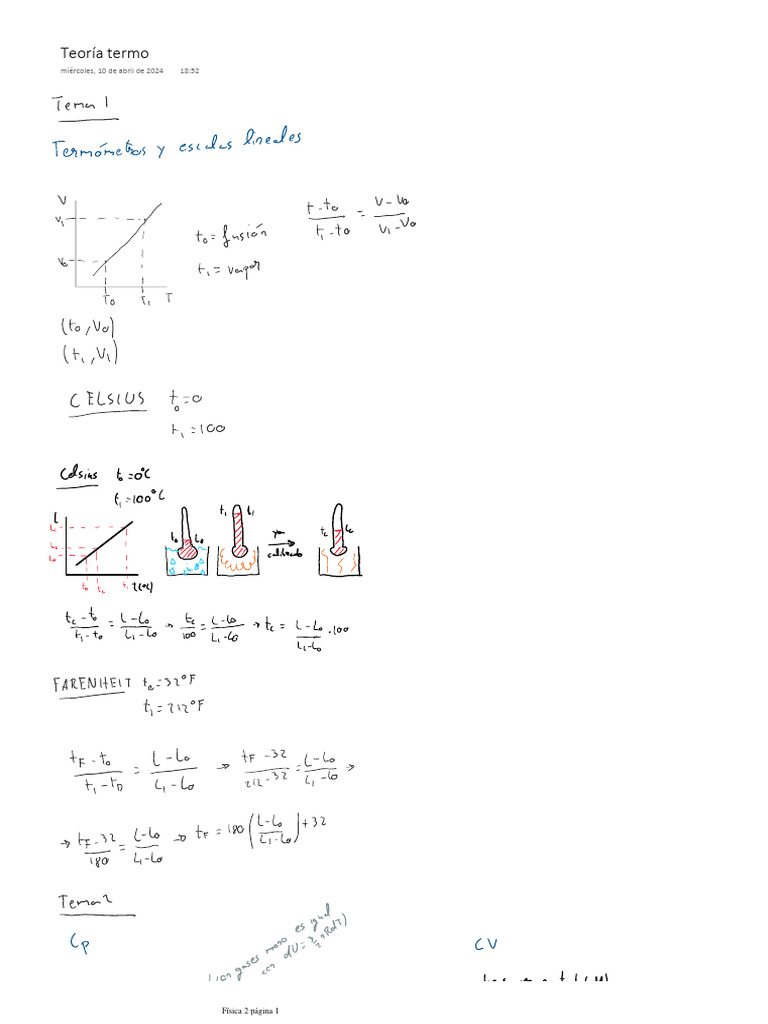 Teoría termo
miércoles, 10 de abril de 2024 18:52
Tema 1
Termómetros y escalas lineales
V
V₁
V₀
T₀ T₁ T
t₀ = fusión
t₁ = vapor
(t - t₀)/(t₁ - t₀) = (V - V₀)/(V₁ - V₀)
(t₀, V₀)
(t₁, V₁)
CELSIUS t₀ = 0
t₁ = 100
Celsius t₀ = 0°C
t₁ = 100°C
L
L₁
t₀ t_c t₁ t(°C)
t₀ L₀
t₁ L₁
ya calibrado
(t_c - t₀)/(t₁ - t₀) = (L - L₀)/(L₁ - L₀) → t_c/100 = (L - L₀)/(L₁ - L₀) → t_c = (L - L₀)/(L₁ - L₀) · 100
FARENHEIT t₀ = 32°F
t₁ = 212°F
(t_F - t₀)/(t₁ - t₀) = (L - L₀)/(L₁ - L₀) → (t_F - 32)/(212 - 32) = (L - L₀)/(L₁ - L₀) →
→ (t_F - 32)/180 = (L - L₀)/(L₁ - L₀) → t_F = 180 ((L - L₀)/(L₁ - L₀)) + 32
Tema 2
Cp
gases mono es igual
con dU = 3/2 nRdT)
CV
Física 2 página 1